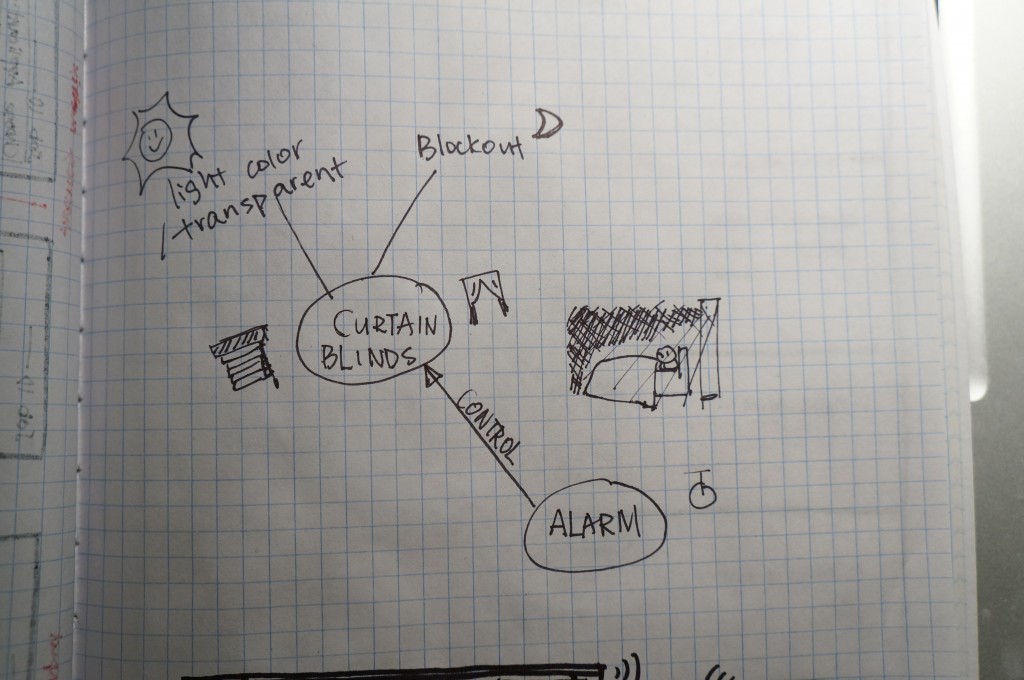 light color
/transparent
Blockout
CURTAIN
BLINDS
CONTROL
ALARM